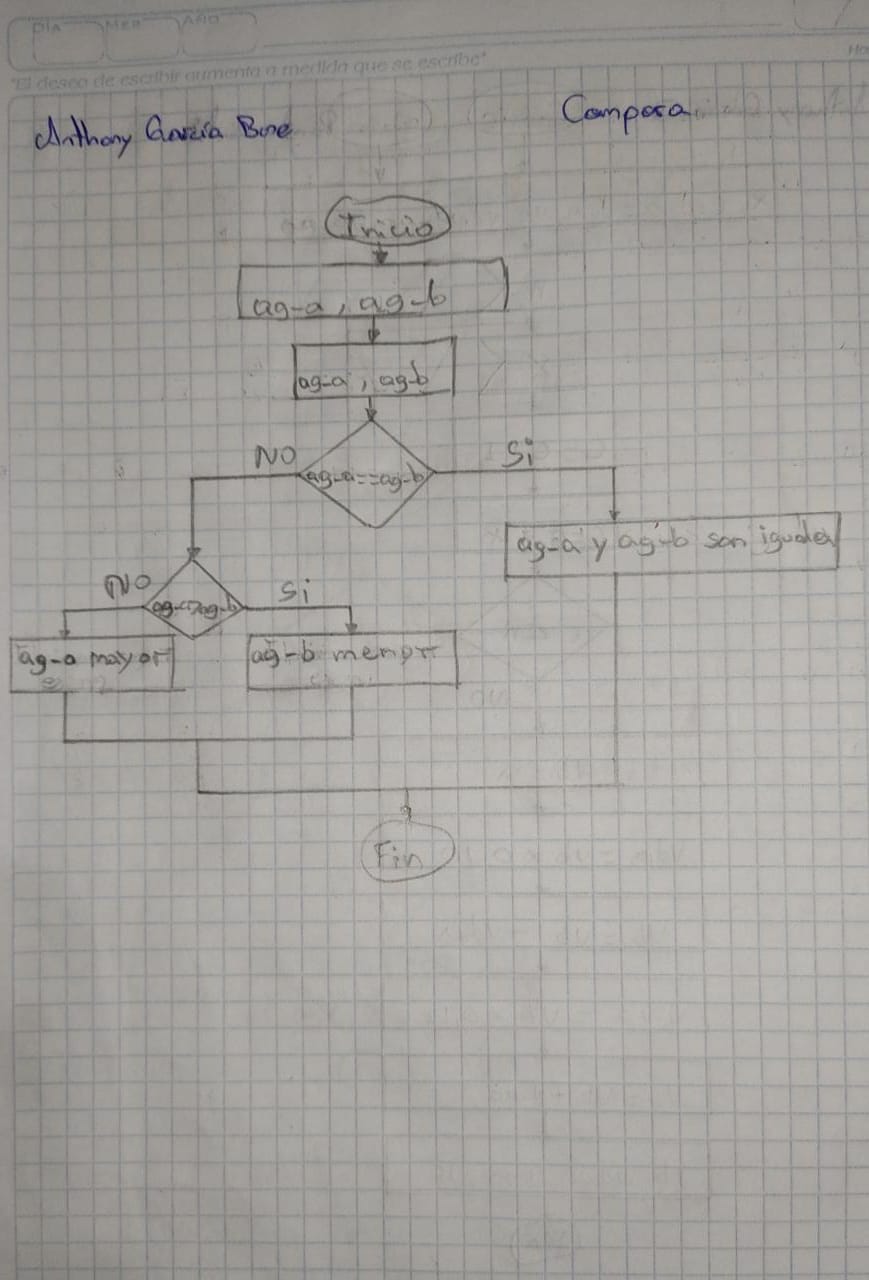 DÍA MES AÑO
"El deseo de escribir aumenta a medida que se escribe"
Anthony García Compara
Inicio
ag-a, ag-b
ag-a, ag-b
NO ag-a==ag-b Si
ag-a y ag-b son iguales
NO ag-a>ag-b Si
ag-a mayor ag-b menor
Fin